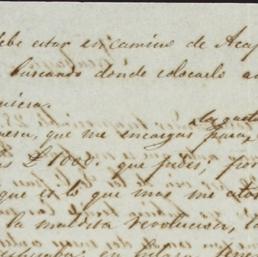 debe estar en camino de Acap
buscando donde colocarlo a
niera.
los gasto
nera, que me encargas para
es £1000. que pides, por
que es lo que mas me ator
la maldita revolucion, la
en